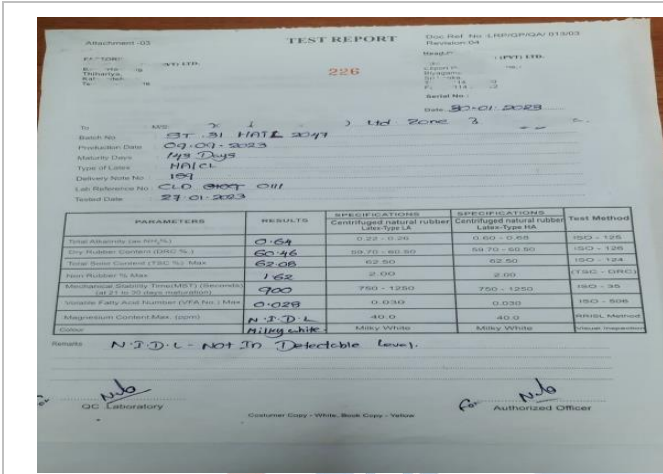 Attachment -03
TEST REPORT
Doc Ref. No :LRP/QP/QA/ 013/03
Revision:04
(PVT) LTD.
(PVT) LTD.
226
Serial No :
Date
To M/S: Ltd Zone 3
Batch No
Production Date
Maturity Days Days
Type of Latex HA/CL
Delivery Note No 189
Lab Reference No CLD 0111
Tested Date 27-01-2023
PARAMETERS
RESULTS
SPECIFICATIONS
Centrifuged natural rubber
Latex-Type LA
SPECIFICATIONS
Centrifuged natural rubber
Latex-Type HA
Test Method
Total Alkalinity (as NH₃%) 0.64 0.22 - 0.26 0.60 - 0.68 ISO - 125
Dry Rubber Content (DRC %) 60.46 59.70 - 60.50 59.70 - 60.50 ISO - 126
Total Solid Content (TSC %) Max 62.08 62.50 62.50 ISO - 124
Non Rubber % Max 1.62 2.00 2.00 (TSC - DRC)
Mechanical Stability Time(MST) (Seconds)
(at 21 to 30 days maturation) 900 750 - 1250 750 - 1250 ISO - 35
Volatile Fatty Acid Number (VFA No.) Max 0.028 0.030 0.030 ISO - 506
Magnesium Content Max. (ppm) N.I.D.L 40.0 40.0 RRISL Method
Colour Milky white. Milky White Milky White Visual Inspection
Remarks N.I.D.L - Not In Detectable Level.
QC Laboratory
For
Authorized Officer
Costumer Copy - White, Book Copy - Yellow